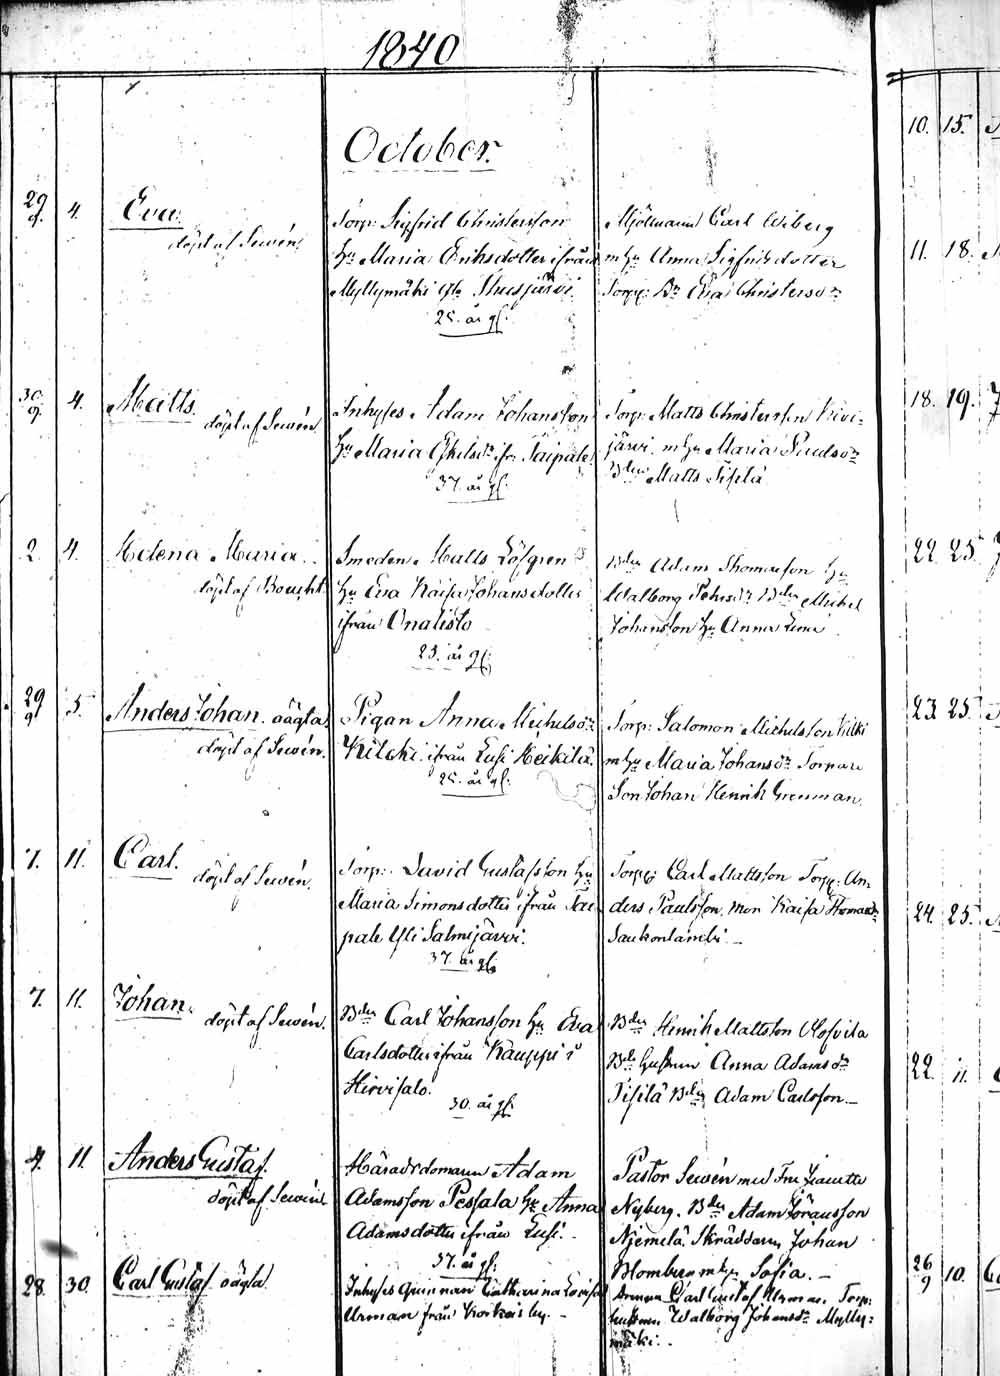 1840
October.
29/9. 4. Eva.
döpt af Sewén.
Torp: Sigfrid Christersson
Hu Maria Eriksdotter ifrån
Myllymäki
25. år gl:
Mjölnaren Carl Wiberg
m hu Anna Sigfridsdotter
Torpp: Dr Eva Christersdr
30/9. 4. Matts.
döpt af Sewén
Inhyses Adam Johansson
Hu Maria ifr. Taipale.
37. år gl:
Torp: Matts Christersson Kivi-
järvi. m hu Maria
Bden Matts Sipilä
2. 4. Helena Maria.
döpt af Boucht.
Smeden Matts Löfgren
hu Eva Kaisa Johansdotter
ifrån Onalisto
23. år gl:
Bden Adam Thomasson hu
Walborg Pehrsdr Bden Michel
Johansson hu Anna Lena
29/9 5. Anders Johan. oägta.
döpt af Sewén.
Pigan Anna Michelsdr
Kilcki ifrån Lusi Heikilä.
25. år gl:
Torp: Salomon Michelsson Kilki
m hu Maria Johansdr Torpare
Son Johan Henrik Grenman.
7. 11. Carl.
döpt af Sewén.
Torp: David Gustafsson hu
Maria Simonsdotter ifrån Tai
pale Yli Salmijärvi.
37. år gl:
Torpp: Carl Mattsson Torpp: An-
ders Paulsson, mor Kaisa
Saukonlambi. –
7. 11. Johan.
döpt af Sewén.
Bden Carl Johansson hu Eva
Carlsdotter ifrån Kauppi i
Hirvisalo.
30. år gl:
Bden Henrik Mattsson
Bde hustrun Anna Adamsdr
Sipilä Bden Adam Carlsson. –
4. 11. Anders Gustaf.
döpt af Sewén.
Häradsdomaren Adam
Adamsson Pessala hu Anna
Adamsdotter ifrån Lusi.
37. år gl:
Pastor Sewén med Fru Jeanette
Nyberg. Bden Adam Göransson
Njemelä Skräddaren Johan
Blomberg m hu Sofia. –
28. 30. Carl Gustaf oägta
Inhyses Qvinnan Catharina Lovisa
Urman från Korkeis by. –
Carl Gustaf Urman. Torp:
hustrun Walborg Johansdr Mylly-
mäki.
10. 15.
11. 18.
18. 19.
22. 25.
23. 25.
24. 25.
22. 11.
26/9 10.